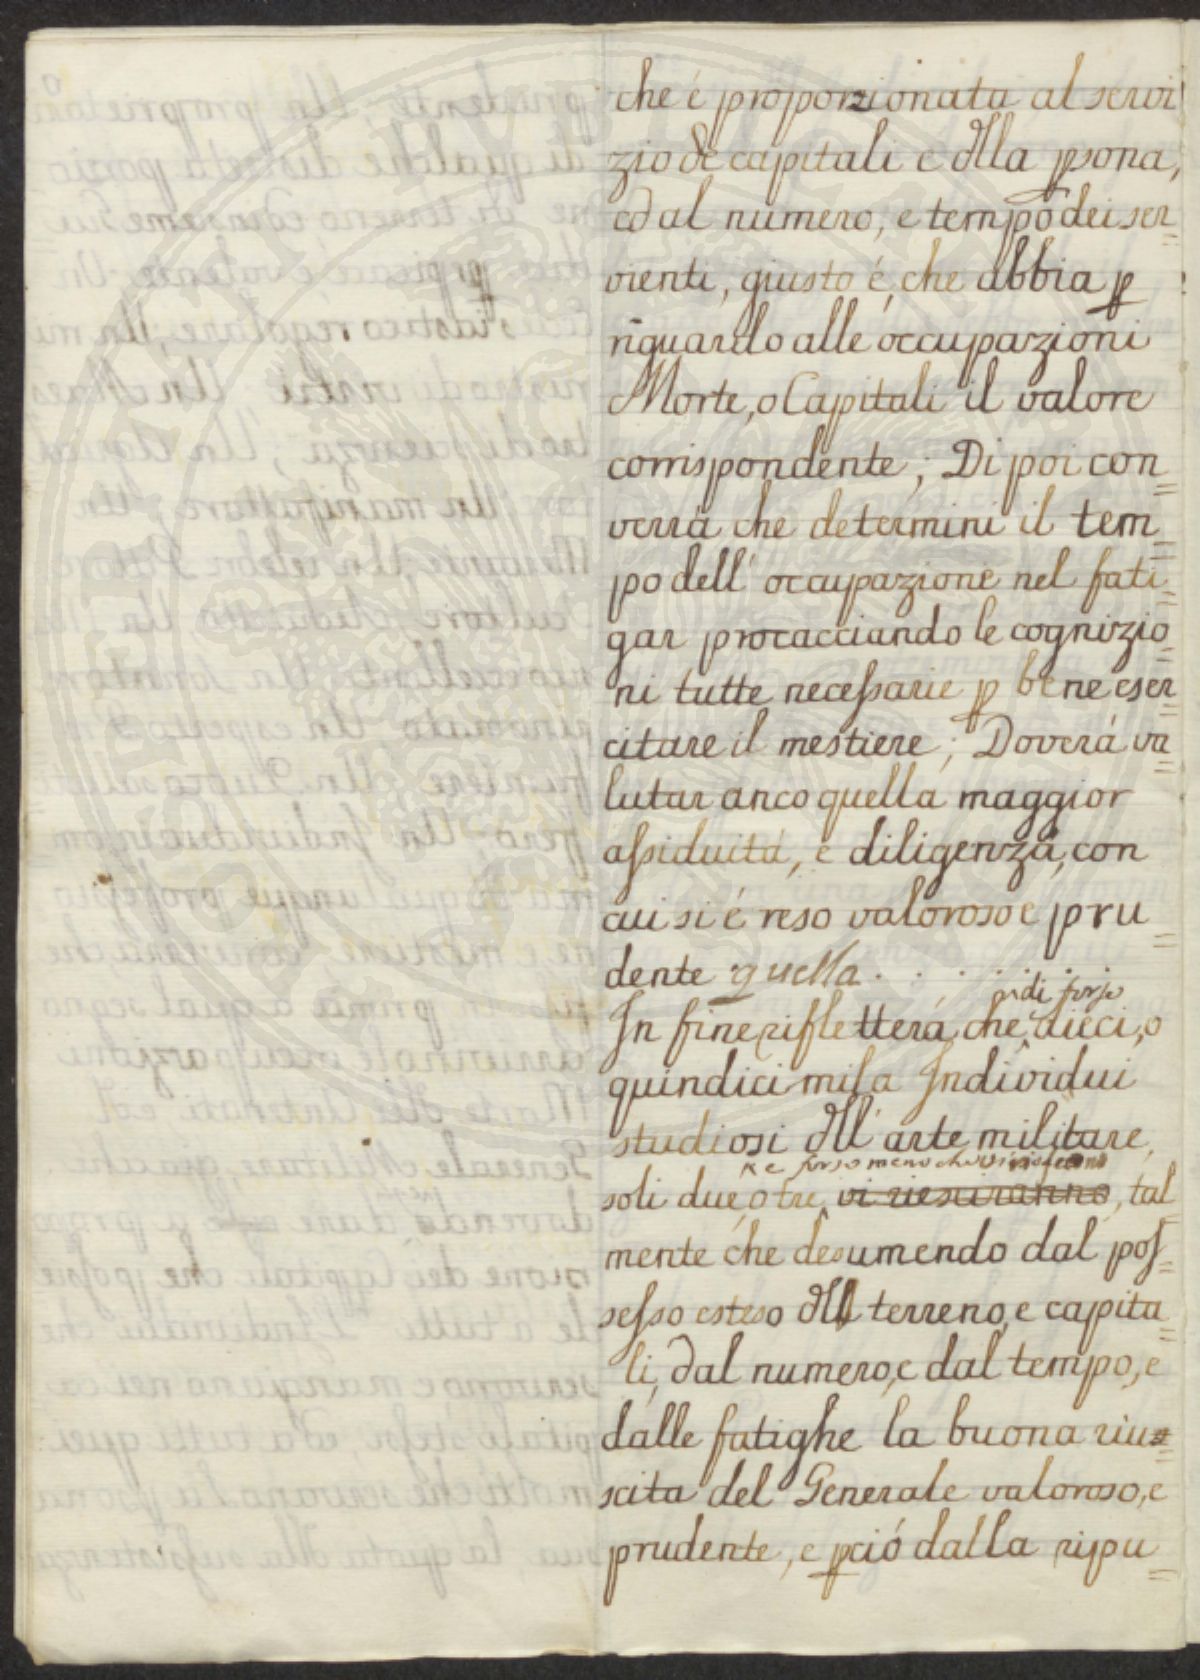 che é proporzionata al servi
zio de capitali e dlla psona,
ed al numero, e tempo dei ser=
vienti, giusto é, che abbia p
riguardo alle occupazioni
Morte, o Capitali il valore
corrispondente; Di poi con=
verrá che determini il tem=
po dell' occupazione nel fati=
gar procacciando le cognizio=
ni tutte necessarie p bene eser=
citare il mestiere; Doverá va=
lutar anco quella maggior
assiduitá, e diligenza, con
cui si é reso valoroso e pru=
dente quella . . . . . . .
di forse
In fine rifletterá, che dieci, o
quindici mila Individui
studiosi dll' arte militare,
e forse meno che
soli due, o tre, vi riesciranno, tal
mente che desumendo dal pos=
sesso esteso dll terreno, e capita=
li, dal numero, e dal tempo, e
dalle fatighe la buona riu=
scita del Generale valoroso, e
prudente, e pció dalla ripu=